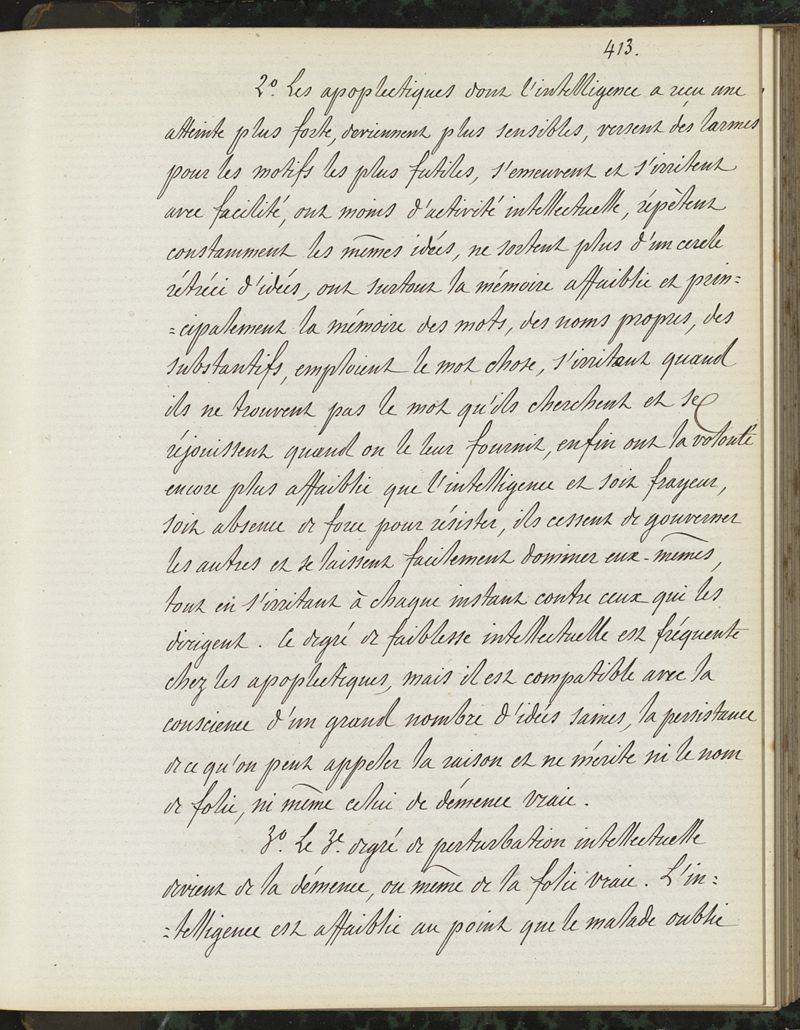 413.
2º. Les apoplectiques dont l'intelligence a reçu une
atteinte plus forte, deviennent plus sensibles, versent des larmes
pour les motifs les plus futiles, s'emeuvent et s'irritent
avec facilité, ont moins d'activité intellectuelle, répètent
constamment les mêmes idées, ne sortent plus d'un cercle
rétréci d'idées, ont surtout la mémoire affaiblie et prin=
=cipalement la mémoire des mots, des noms propres, des
substantifs, emploient le mot chose, s'irritent quand
ils ne trouvent pas le mot qu'ils cherchent et se
réjouissent quand on le leur fournit, enfin ont la volonté
encore plus affaiblie que l'intelligence et soit frayeur,
soit absence de force pour résister, ils cessent de gouverner
les autres et se laissent facilement dominer eux-mêmes,
tout en s'irritant à chaque instant contre ceux qui les
dirigent. Ce degré de faiblesse intellectuelle est fréquente
chez les apoplectiques, mais il est compatible avec la
conscience d'un grand nombre d'idées saines, la persistance
de ce qu'on peut appeler la raison et ne mérite ni le nom
de folie, ni même celui de démence vraie.
3º. Le 3e. degré de perturbation intellectuelle
devient de la démence, ou même de la folie vraie. L'in=
=telligence est affaiblie au point que le malade oublie